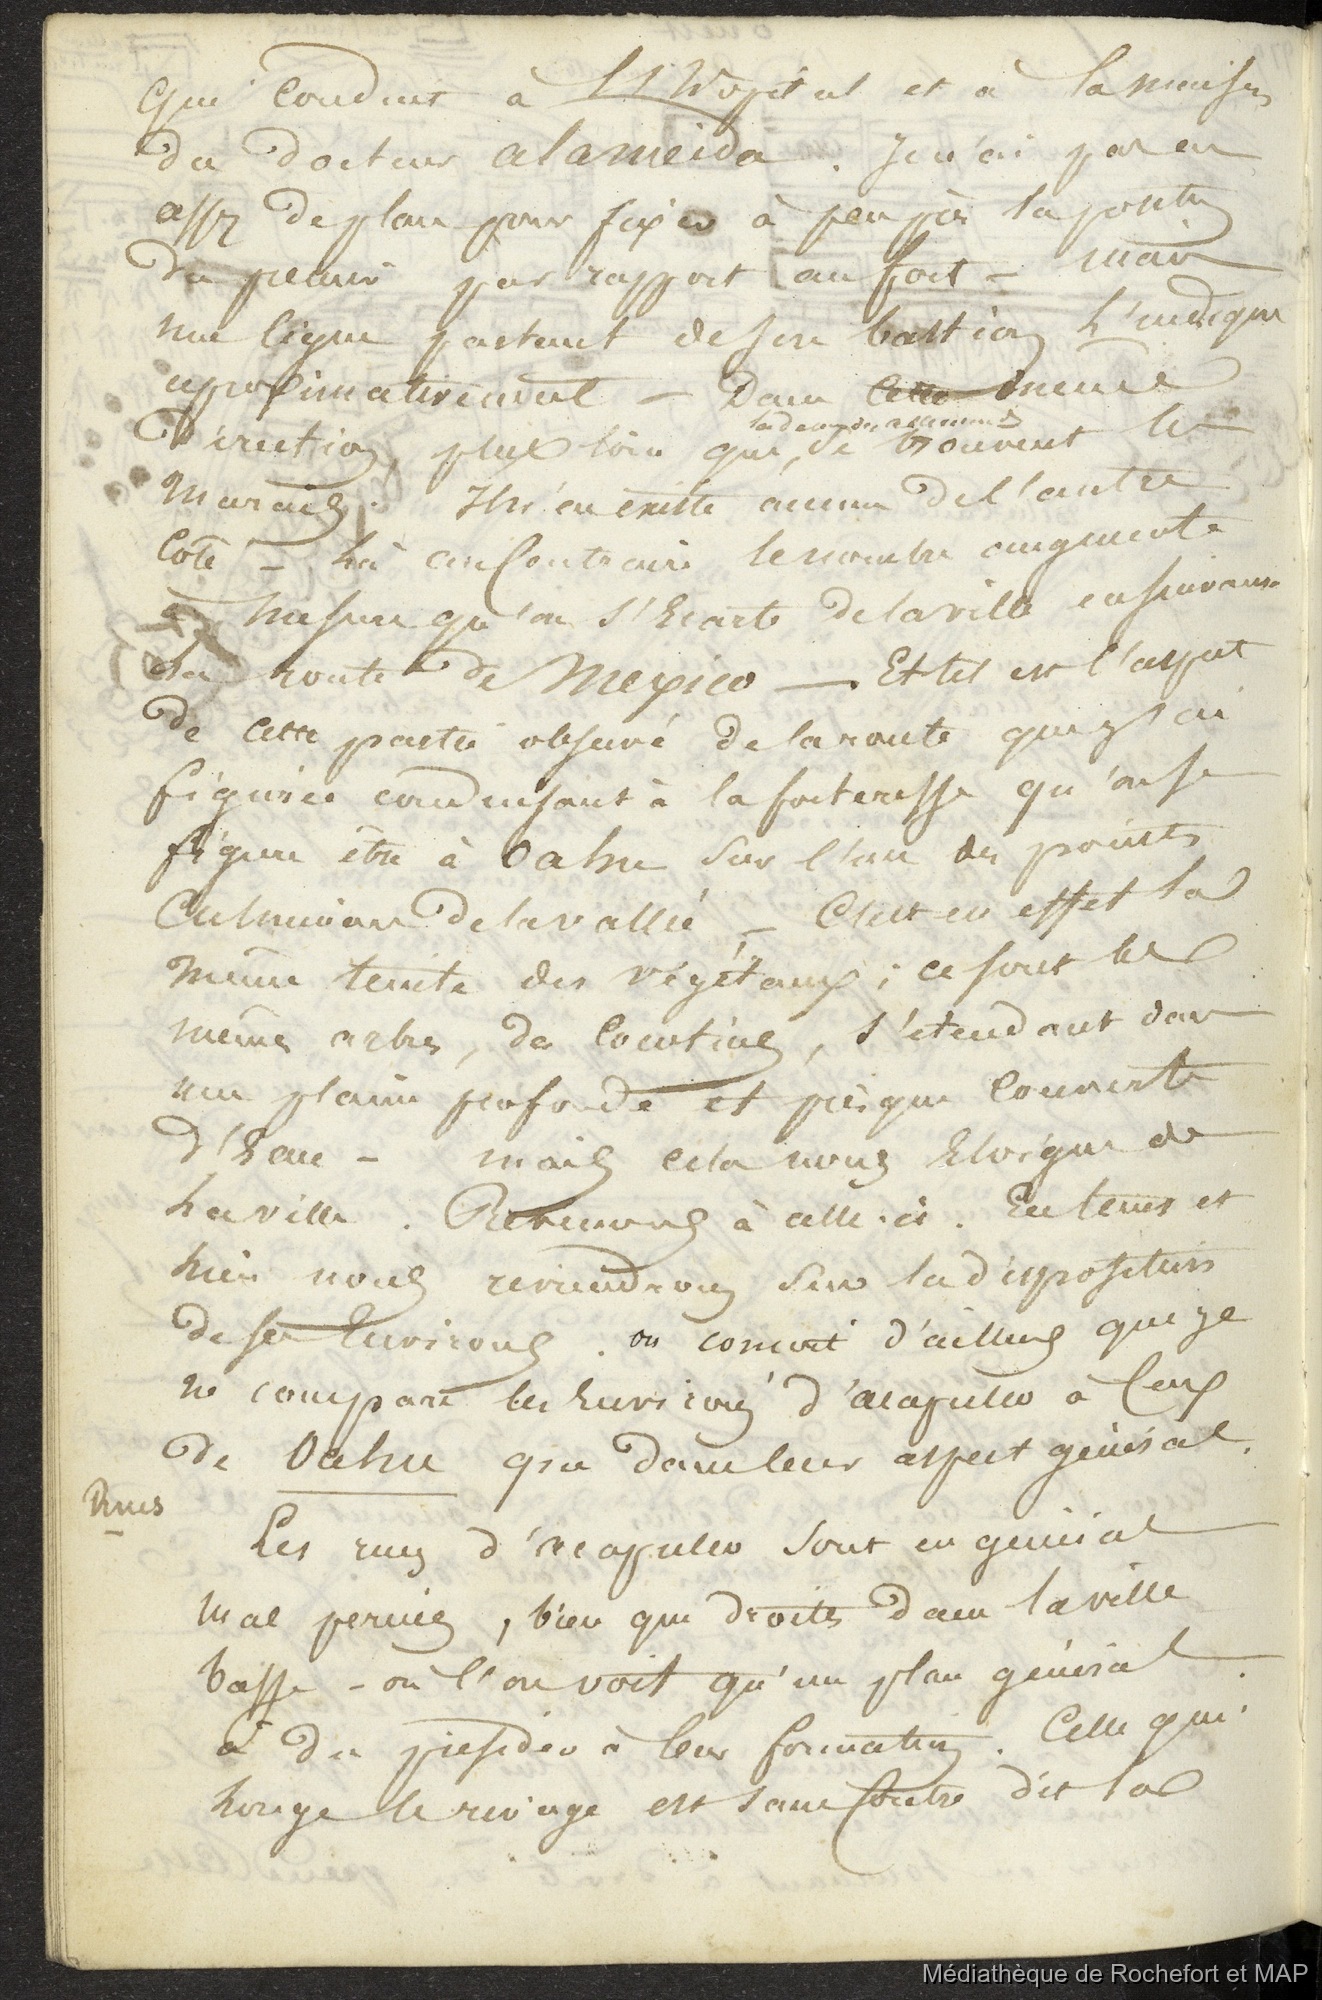 qui conduit à l'hopital et à la maison
du docteur alameida. Je n'ai pas eu
assez de place pour fixer à peu près la position
du premier par rapport au fort - mais
une ligne partant de son bastion l'indique
aproximativement - Dans cette même
direction, plus loin que, se trouvent les
marais. Il n'en existe aucun de l'autre
coté - Là au contraire le nombre augmente
à mesure qu'on s'Ecarte de la ville en suivant
la route de Mexico —. Et tel est l'aspect
de cette partie observé de la route que j'ai
figurée conduisant à la forteresse qu'on se
figure être à Oahu sur l'un des points
Culminans de la vallée - C'est en effet la
même teinte des végétaux ; ce sont les
mêmes arbres, des Cocotiers, s'étendant dans
une plaine profonde et presque couverte
d'Eau - mais cela nous Eloigne de
la ville. Revenons à celle-ci. En tems et
lieu nous reviendrons sur la disposition
de ses Environs. on conçoit d'ailleurs que je
ne compare les Environs d'acapulco à Ceux
de Oahu que dans leur aspect général.
Rues
Les rues d'acapulco sont en général
mal percées, bien que droites dans la ville
basse - où l'on voit qu'un plan général
a du présider à leur formation. Celle qui
longe le rivage est sans contre dit la
Médiathèque de Rochefort et MAP